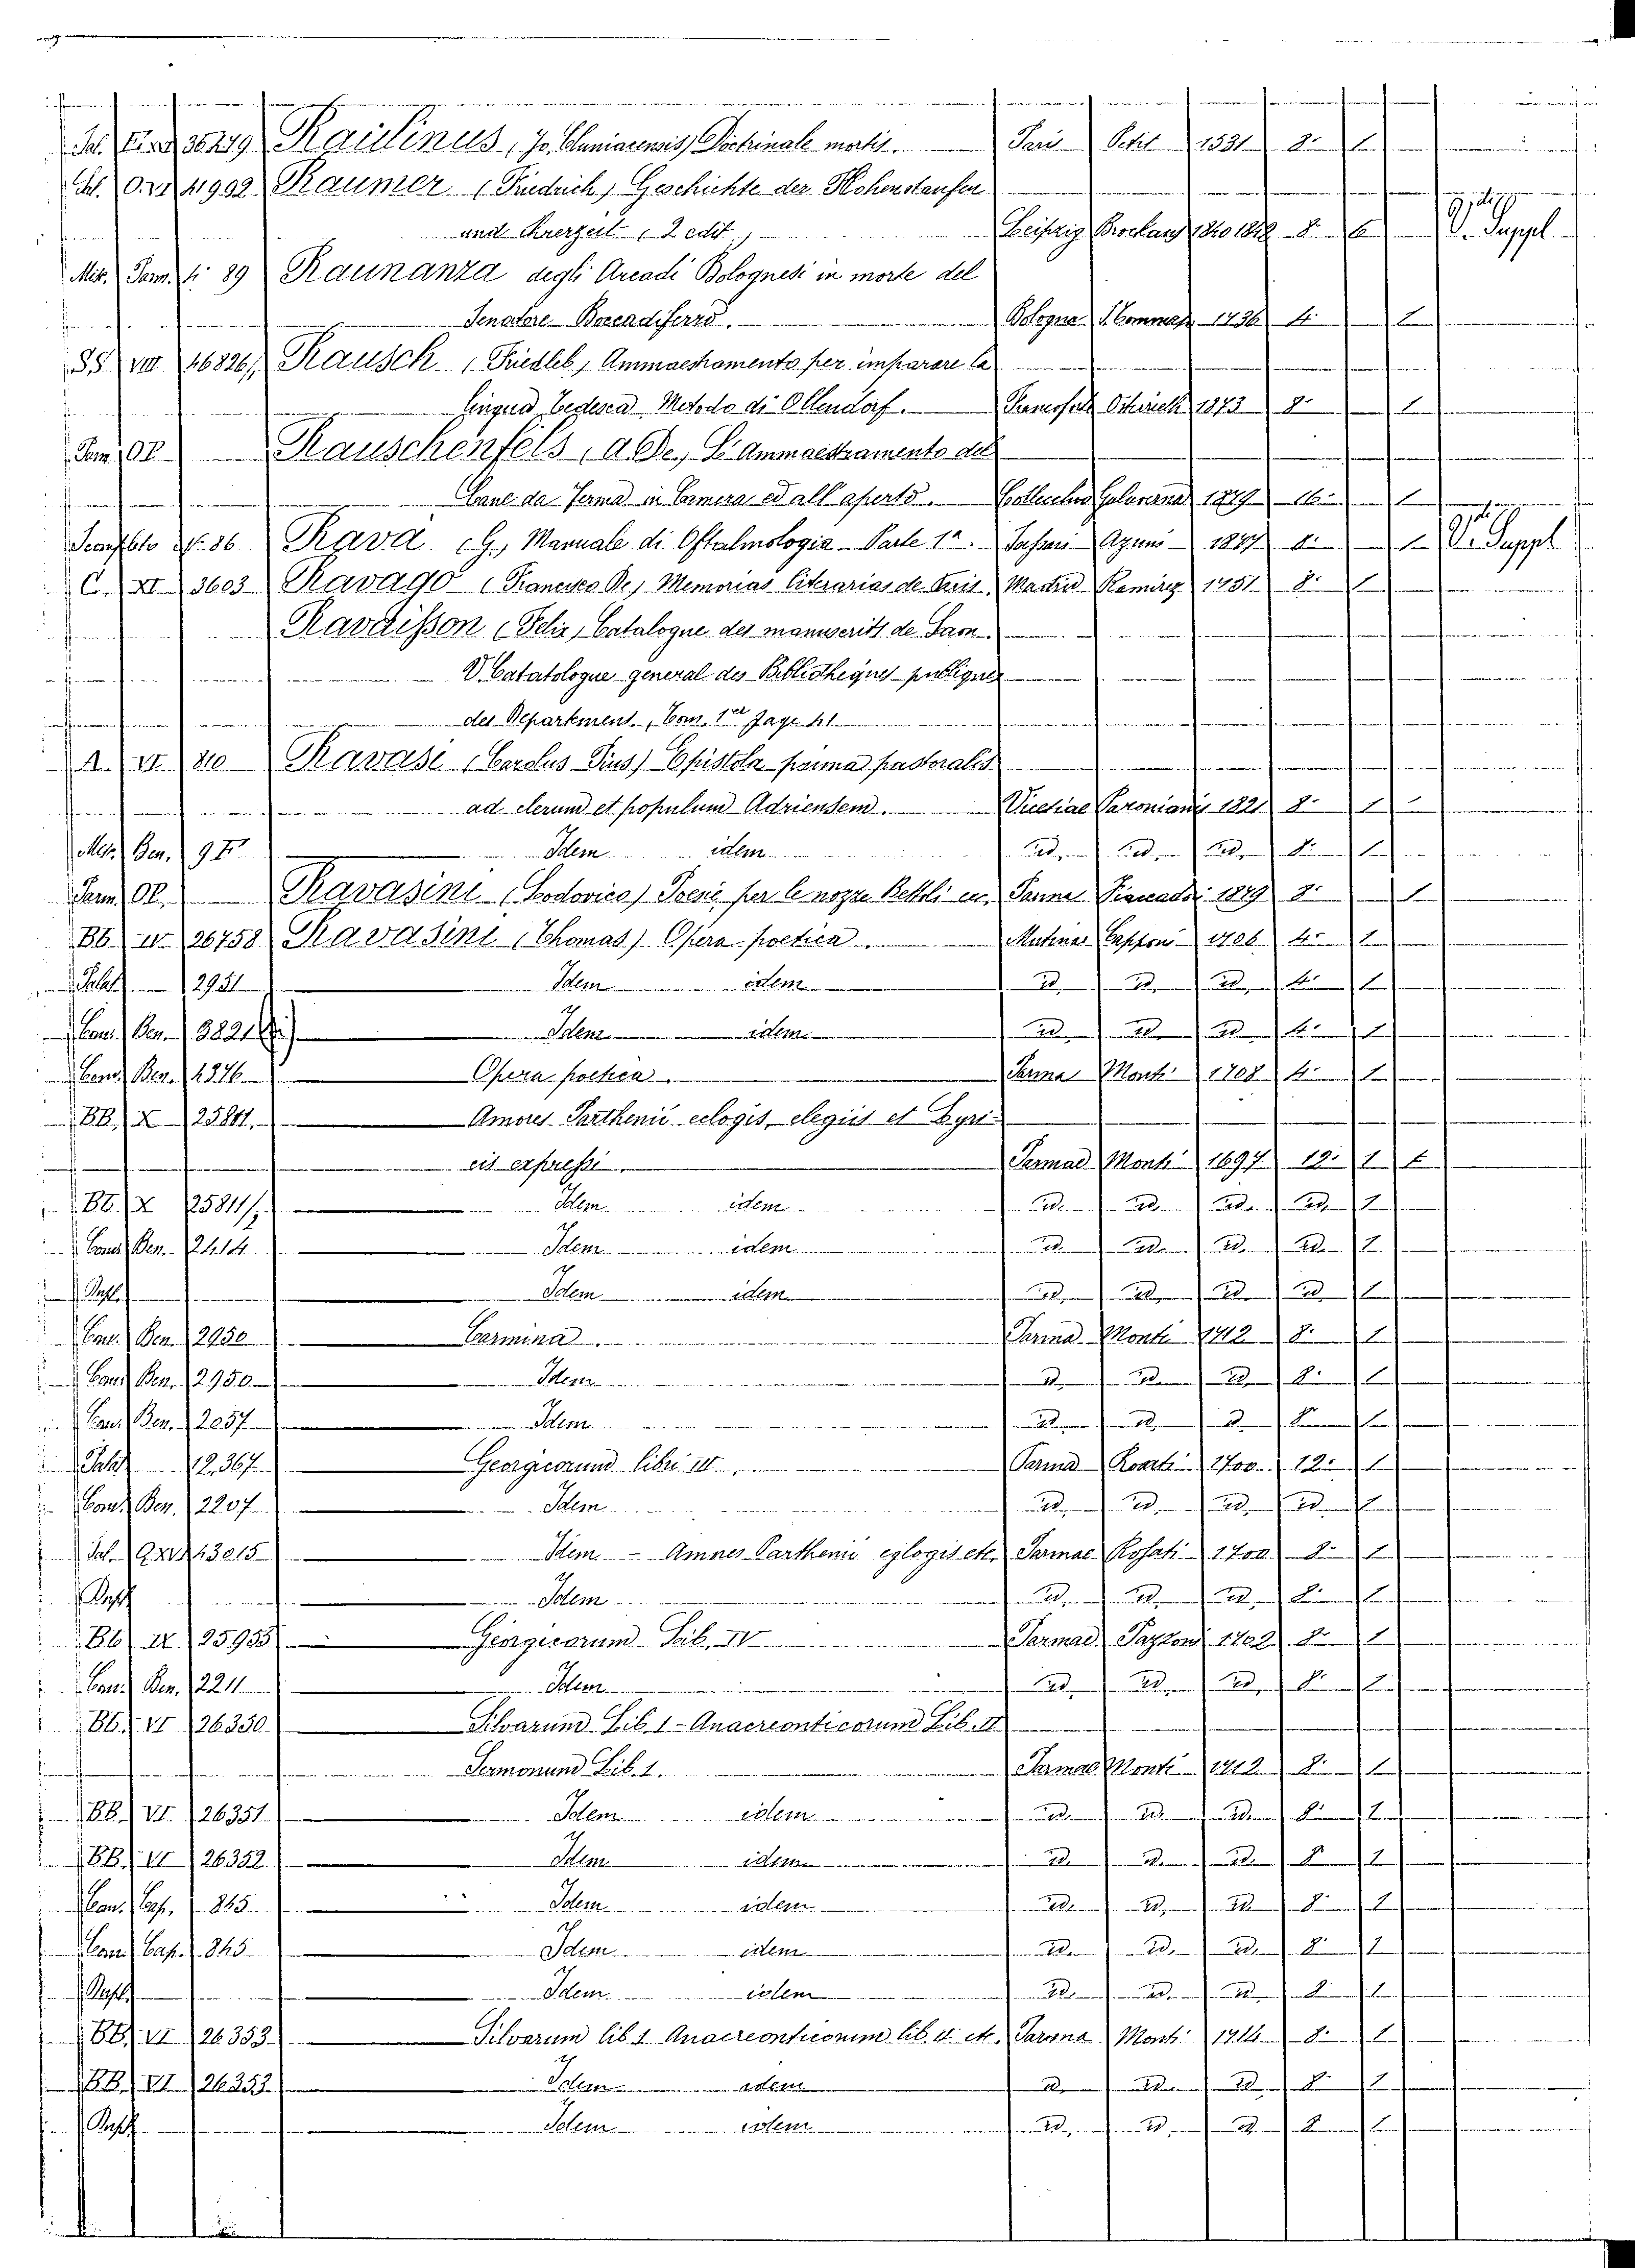 Sal. 36249 Raulinus, Jo. Cluniacensis, Doctrinale mortis. Paris Petit 1531 8º 1
Sal. O.VI 41992 Raumer (Friedrich) Geschichte der Hohenstaufen
und ihrerzeit (2 edit.) Leipzig Brockaus 1840 1842 8. 6 V. Suppl.
Misc. Parm. 4º 89 Raunanza degli Arcadi Bolognesi in morte del
Senatore Bocendiferro. Bologna 1736 4 1
SS. VIII 46826 Rausch (Friedleb) Ammaestramento per imparare la
lingua Tedesca Metodo di Ollendorf. 1873 8º 1
Parm. OP. Rauschenfels (A. De) L'Ammaestramento del
Cane da Ferma in Camera ed all'aperto. 1879 16. 1
86 Ravà (G.) Manuale di Oftalmologia Parte 1ª. Sassari Azuni 8. 1 V. Suppl.
C. XI 3603 Ravago (Francisco De) Memorias literarias de Paris. Madrid Ramirez 1751 8. 1
Ravaisson (Felix) Catalogue des manuscrits de Laon.
V. Catatologue general des Bibliotheques publiques
des Departmens. Tom. 1er Page 41
A. VI. 810 Ravasi (Carolus Pius) Epistola prima pastoralis
ad clerum et populum Adriensem. Vicetiae Paronianis 1821 8º 1
Misc. Ben. 98 Idem idem id. id. id. 8. 1
Parm. OP. Ravasini (Lodovico) Poesie per le nozze Bettoli ec. Parma Fiaccadori 1879 8º 1
BB. IV. 26758 Ravasini (Thomas) Opera poetica. Mutinae Capponi 1706 4º 1
Palat. 2951 Idem idem id. id. id. 4º 1
Cons. Ben. 3821 Idem idem id. id. id. 4. 1
Cons. Ben. 4376 Opera poetica. Parmae Monti 1708 4. 1
BB. X 25811. Amores Parthenii eclogis, elegiis et Lyri-
cis expressi. Parmae Monti 1697 12. 1
BB. X 25811/2 Idem idem id. id. id. id. 1
Cons. Ben. 2414 Idem idem id. id. id. id. 1
Idem idem id. id. id. id. 1
Cons. Ben. 2950 Carmina. Parma Monti 1712 8. 1
Cons. Ben. 2950 Idem id. id. id. 8. 1
Cons. Ben. 2057 Idem id. id. id. 8 1
Palat. 12,367 Georgicorum libri IV. Parma Rosati 1700 12. 1
Cons. Ben. 2207 Idem id. id. id. id. 1
Sal. 43015 Idem - Amnes Parthenii eglogis etc. Parmae Rosati 1700 8. 1
Idem id. id. id. 8. 1
BB. IX. 25955 Georgicorum Lib. IV Parmae Pazzoni 1702 8. 1
Cons. Ben. 2211 Idem id. id. id. 8. 1
BB. VI 26350 Silvarum Lib. 1 - Anacreonticorum Lib. II
Sermonum Lib. 1. Parmae Monti 1712 8. 1
BB. VI. 26351 Idem idem id. id. id. 8. 1
BB. VI 26352 Idem idem id. id. id. 8 1
Cons. Cap. 845 Idem idem id. id. id. 8. 1
Cons. Cap. 845 Idem idem id. id. id. 8. 1
Idem idem id. id. id. 8. 1
BB. VI 26353 Silvarum lib. 1 Anacreonticorum lib. II etc. Parma Monti 1714 8. 1
BB. VI 26353 Idem idem id. id. id. 8. 1
Idem idem id. id. id. 8 1